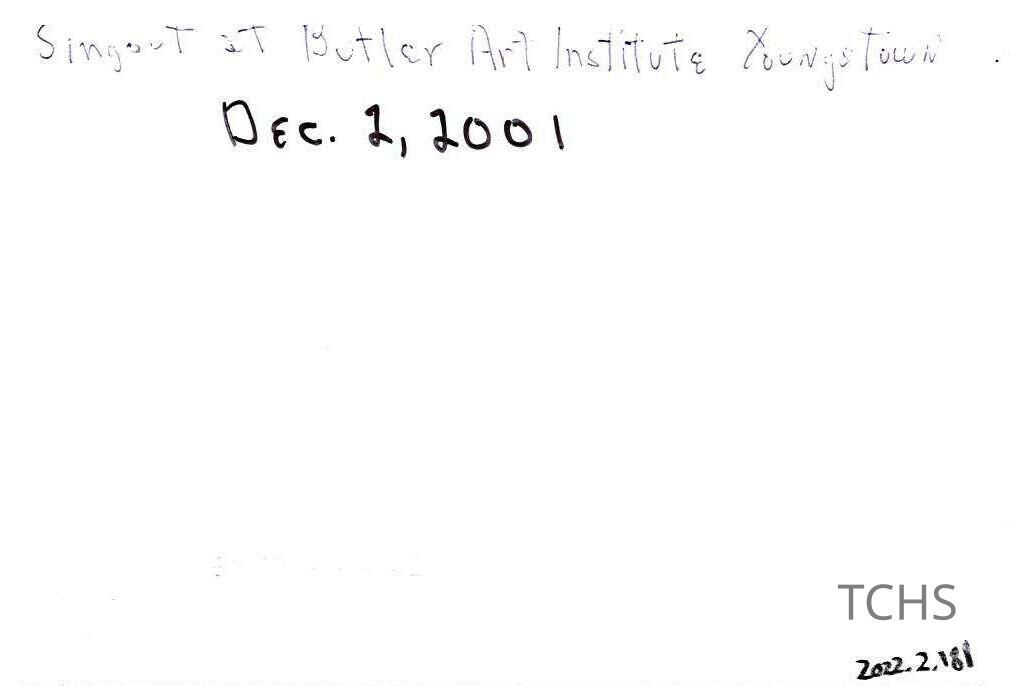 Singout at Butler Art Institute Youngstown
Dec. 2, 2001
TCHS
2022.2.181